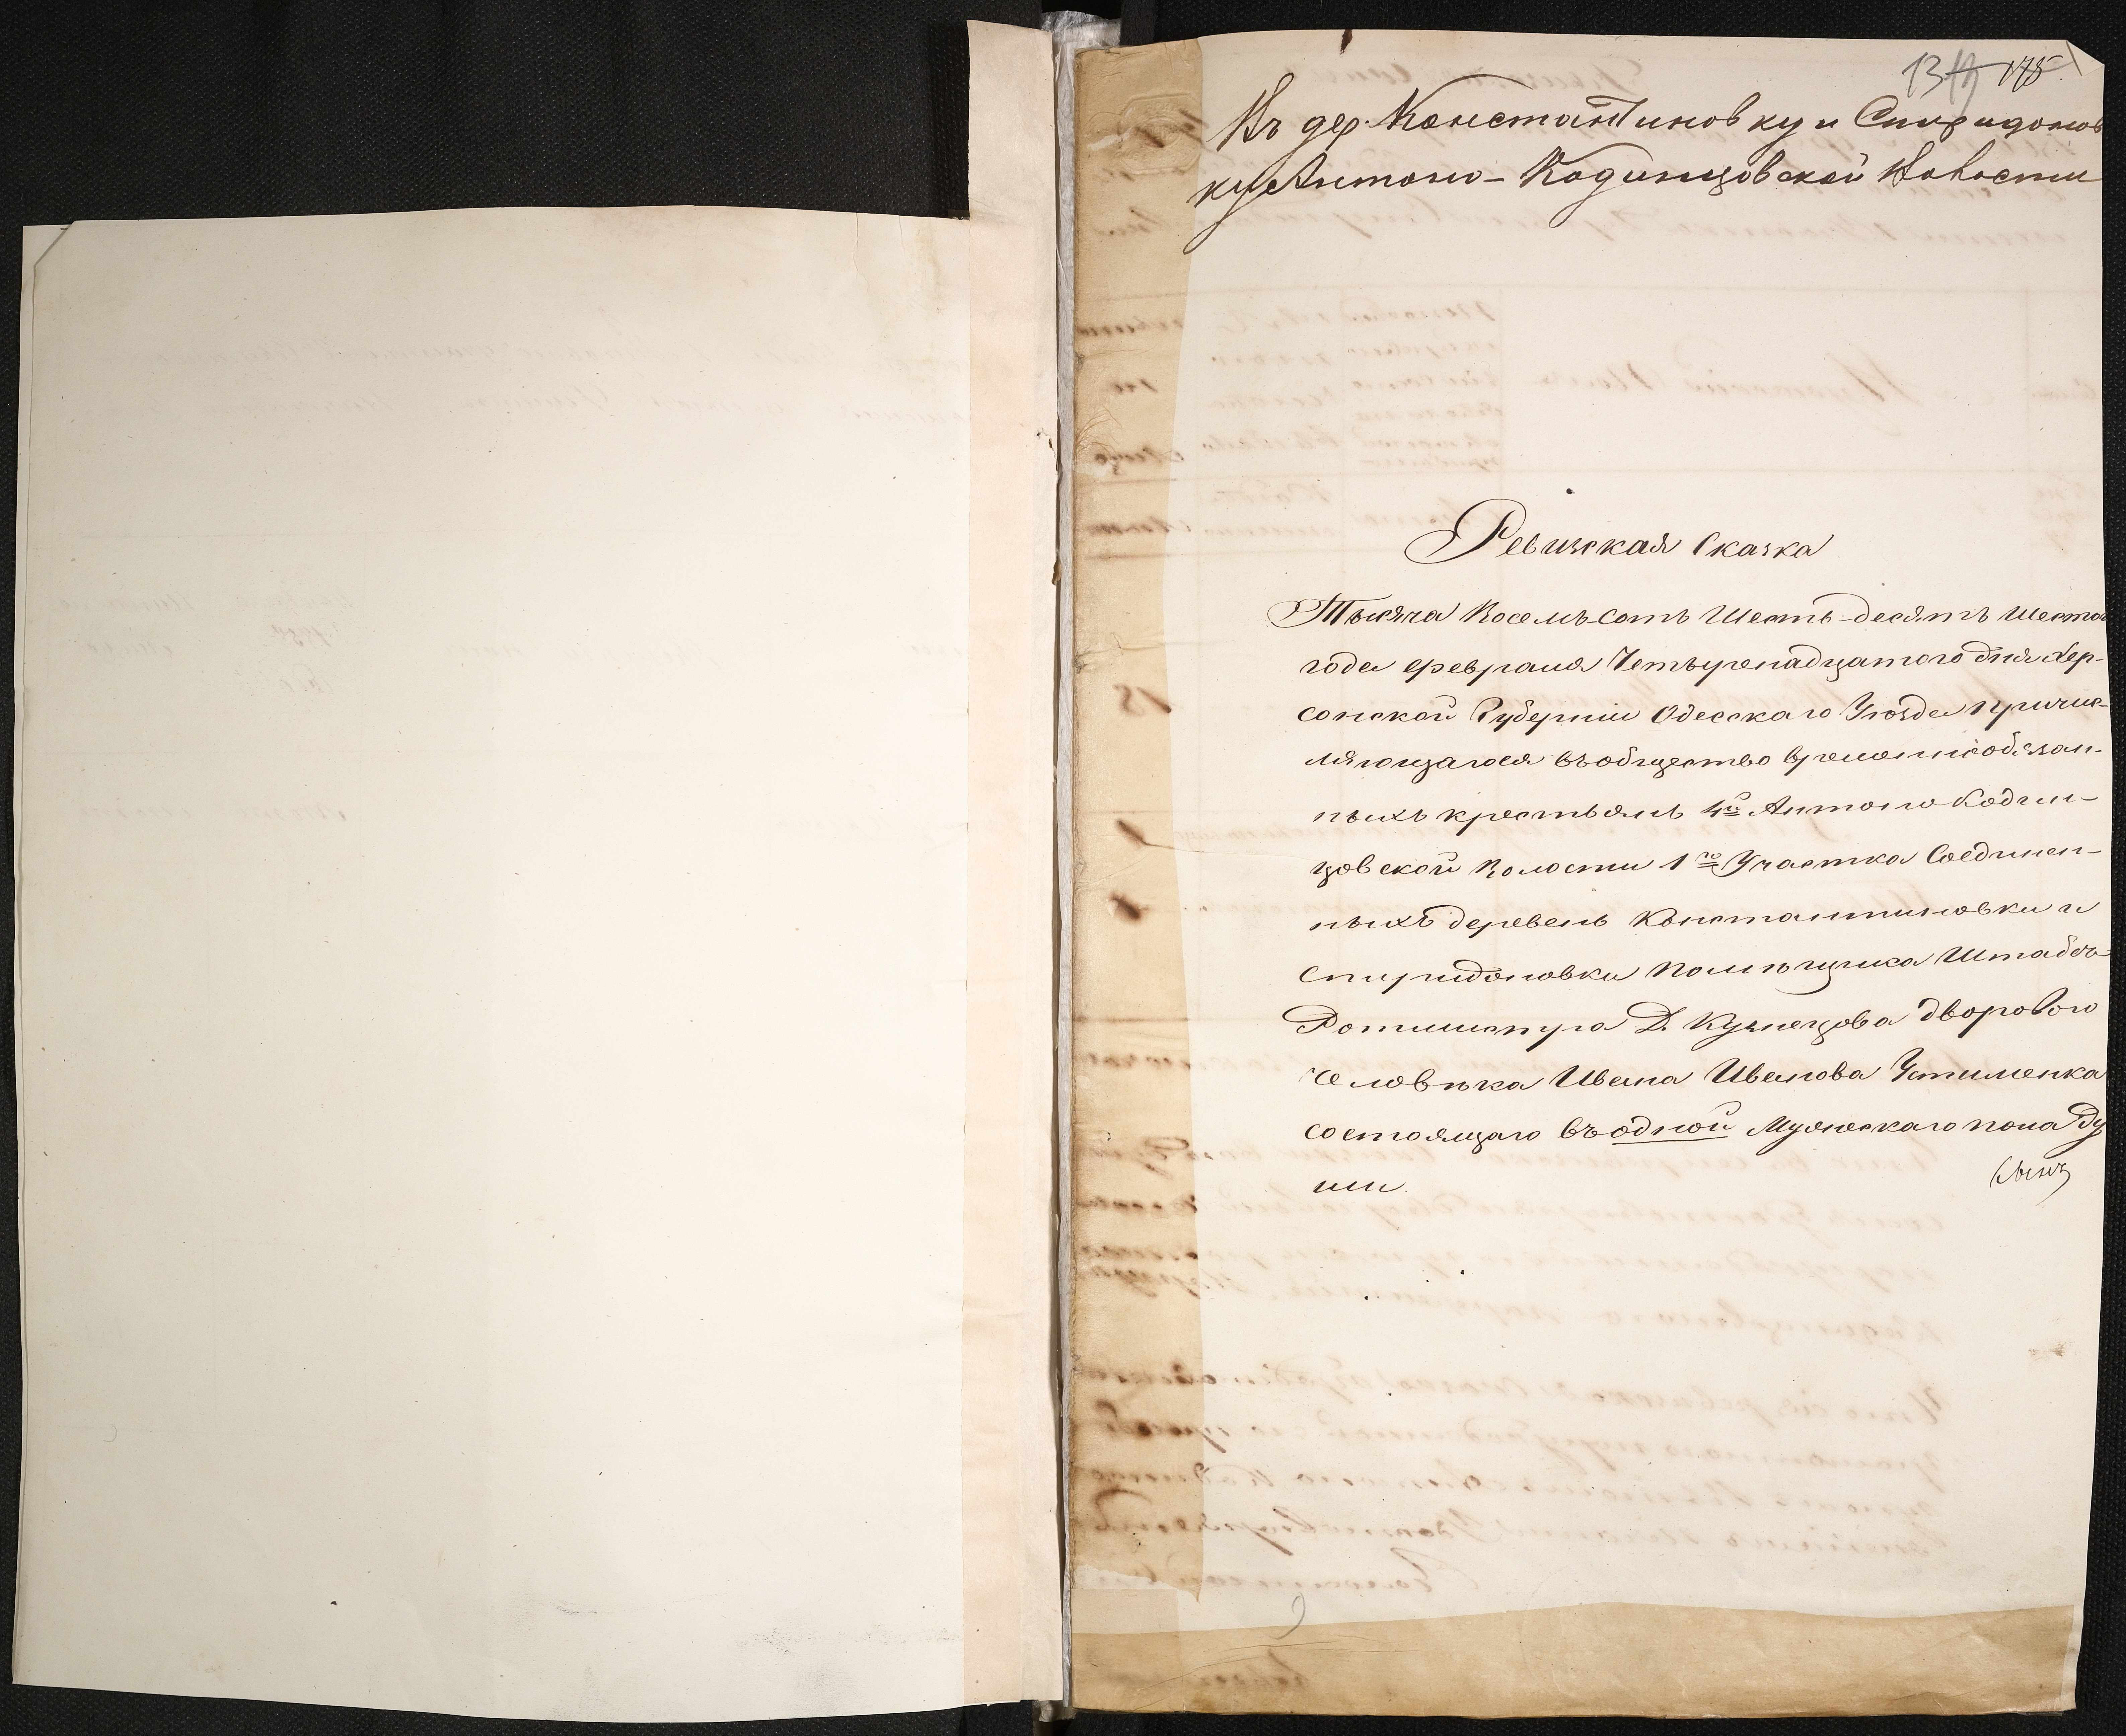 Въ дер. Константиновку и Спиридонов
ку Антоно-Кодинцовской Волости
Ревизская Сказка
Тысяча Восемь-сотъ Шесть-десятъ шестаго
года февраля Четырнадцатого дня Хер-
сонской Губерніи Одесскаго Уѣзда причис-
ляющагося въ общество временнообязан-
ныхъ крестьянъ 4й Антоно Кодин-
цовской Волости 1го Участка Соединен-
ныхъ деревень Константиновки и
Спиридоновки помѣщика Штабсъ-
Ротмистра Д. Кузнецова дворового
человѣка Ивана Иванова Устименка
состоящаго въ одной Мужескаго пола Ду
ши.